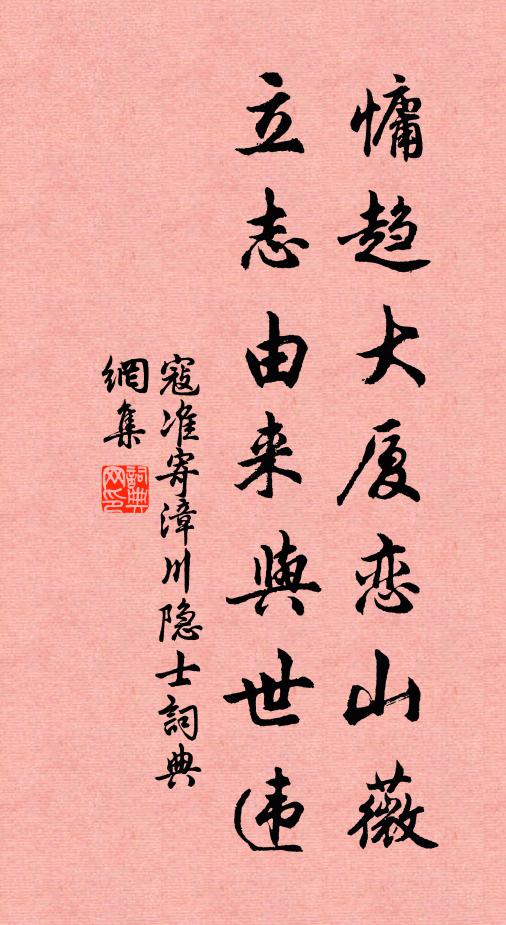 慵趋大厦恋山薇
立志由来與世违
寇准寄漳川隐士詞典
網集
詞典
网印